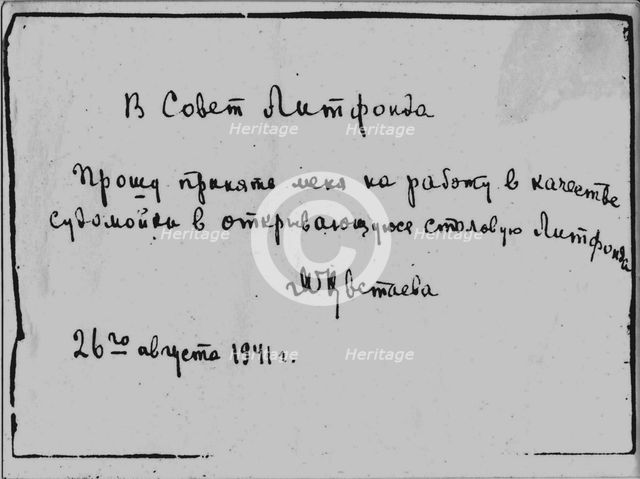 В Совет Литфонда
Прошу принять меня на работу в качестве
судомойки в открывающуюся столовую Литфонда
МЦветаева
26го августа 1941 г.
Heritage
Heritage
Heritage
Heritage
Heritage
Heritage
©